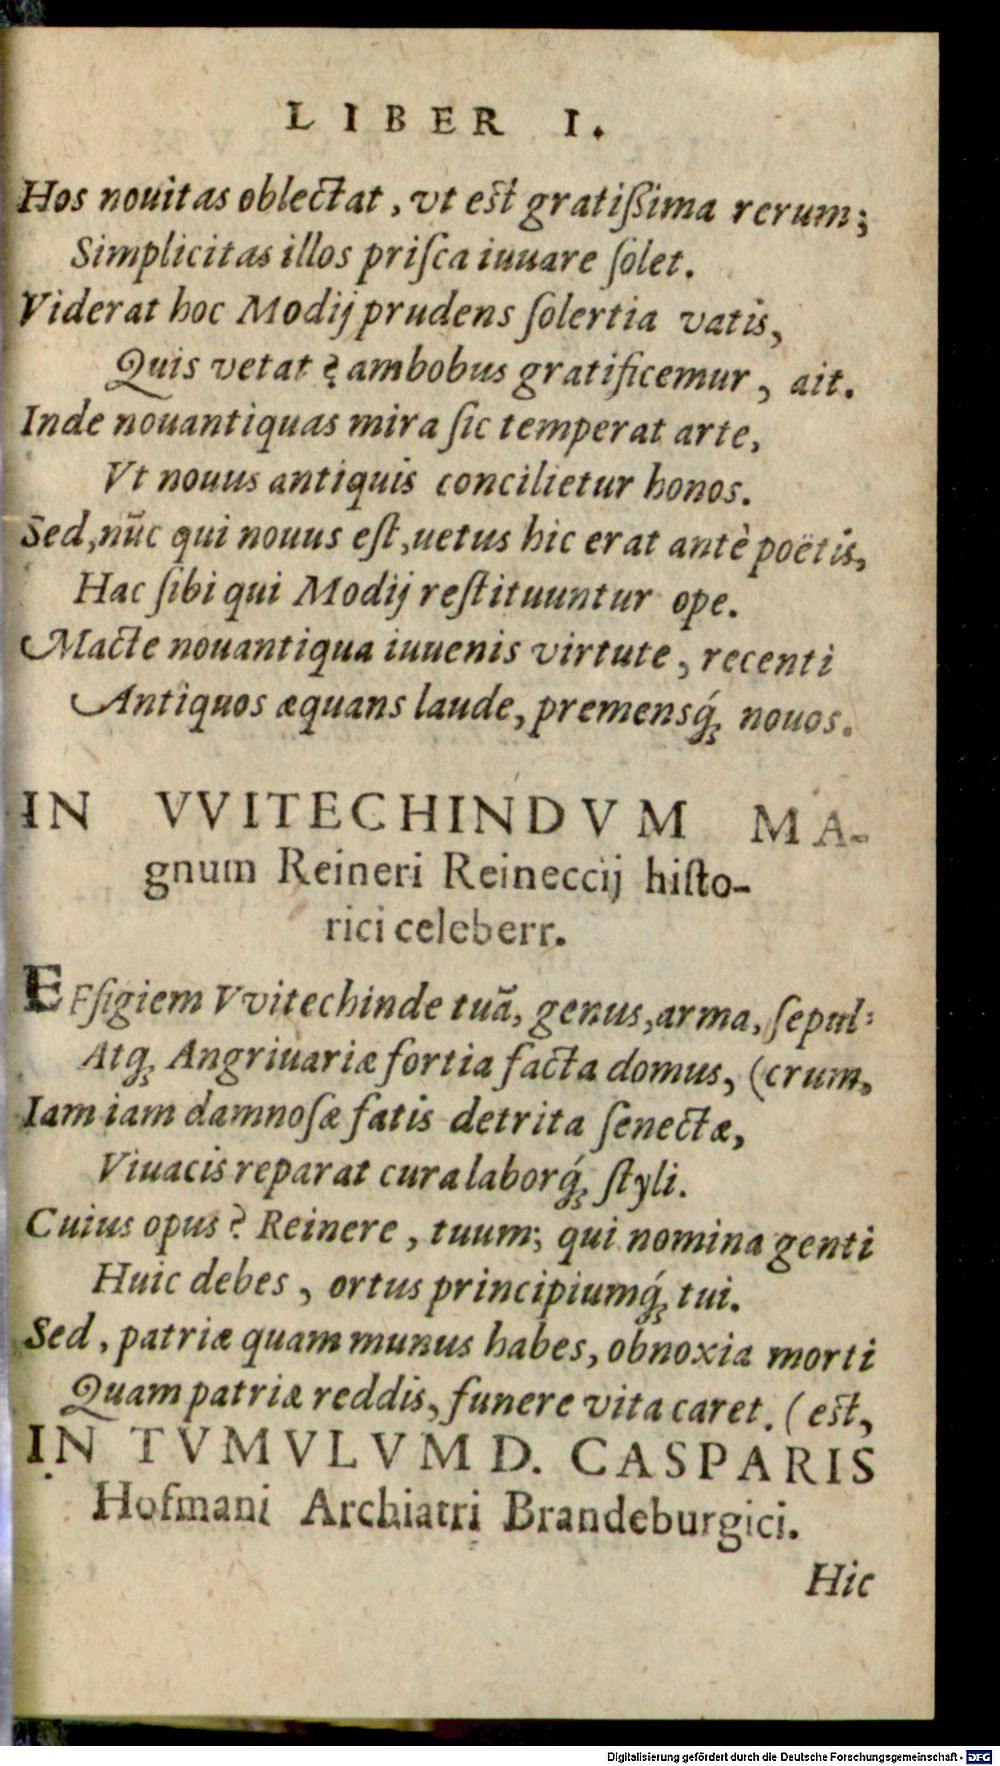 LIBER I.
Hos nouitas oblectat, vt est gratißima rerum;
Simplicitas illos priſca iuuare ſolet.
Viderat hoc Modij prudens ſolertia vatis,
Quis vetat? ambobus gratificemur, ait.
Inde nouantiquas mira ſic temperat arte,
Vt nouus antiquis concilietur honos.
Sed, nūc qui nouus eſt, uetus hic erat antè poëtis,
Hac ſibi qui Modij reſtituuntur ope.
Macte nouantiqua iuuenis virtute, recenti
Antiquos æquans laude, premensq́; nouos.
IN VVITECHINDVM MA-
gnum Reineri Reineccij hiſto-
rici celeberr.
EFſigiem Vvitechinde tuā, genus, arma, ſepul-
Atq; Angriuariæ fortia facta domus, (crum,
Iam iam damnoſæ fatis detrita ſenectæ,
Viuacis reparat cura laborq́; ſtyli.
Cuius opus? Reinere, tuum; qui nomina genti
Huic debes, ortus principiumq́; tui.
Sed, patriæ quam munus habes, obnoxia morti
Quam patriæ reddis, funere vita caret. (est,
IN TVMVLVM D. CASPARIS
Hofmani Archiatri Brandeburgici.
Hic
Digitalisierung gefördert durch die Deutsche Forschungsgemeinschaft - DFG